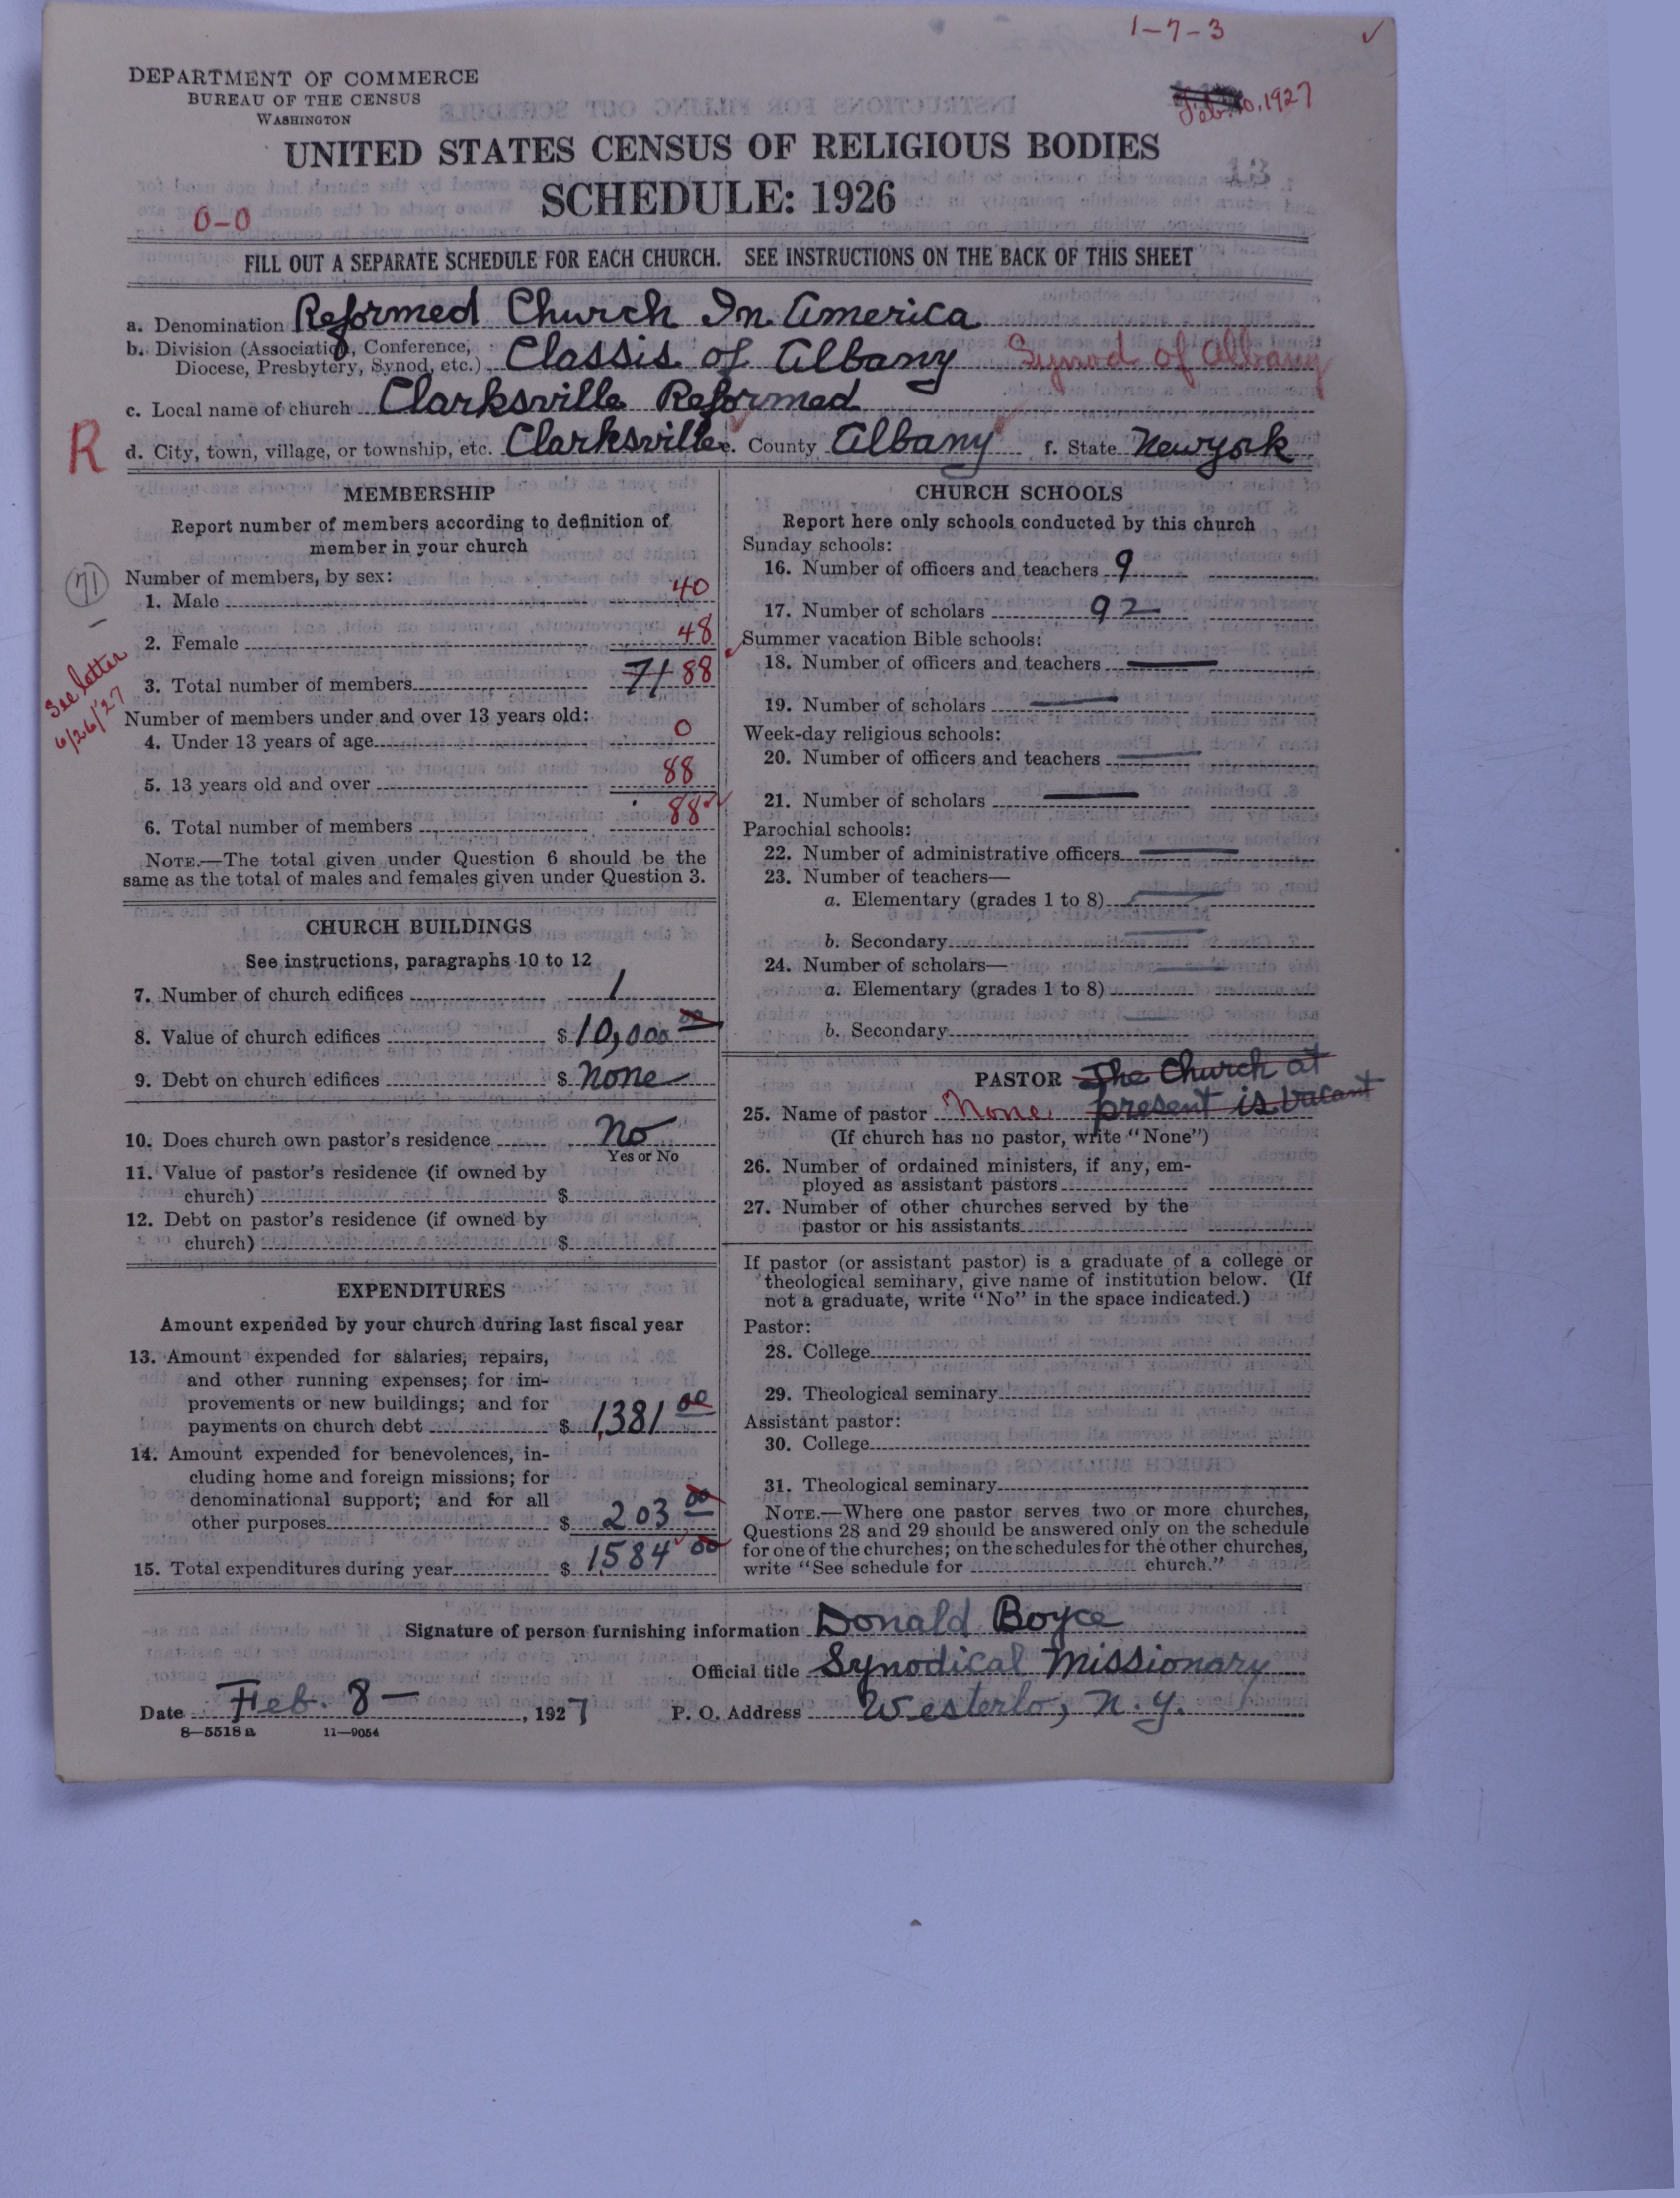 1-7-3
DEPARTMENT OF COMMERCE
BUREAU OF THE CENSUS
WASHINGTON
Feb. 10, 1927
UNITED STATES CENSUS OF RELIGIOUS BODIES
SCHEDULE: 1926
13
0-0
FILL OUT A SEPARATE SCHEDULE FOR EACH CHURCH. SEE INSTRUCTIONS ON THE BACK OF THIS SHEET
a. Denomination Reformed Church In America
b. Division (Association, Conference, Diocese, Presbytery, Synod, etc.) Classis of Albany Synod of Albany
c. Local name of church Clarksville Reformed
R
d. City, town, village, or township, etc. Clarksville e. County Albany f. State New york
MEMBERSHIP
Report number of members according to definition of
member in your church
71
Number of members, by sex:
1. Male 40
2. Female 48
See letter
6/26/27
3. Total number of members 71 88
Number of members under and over 13 years old:
4. Under 13 years of age 0
5. 13 years old and over 88
6. Total number of members 88
NOTE.—The total given under Question 6 should be the
same as the total of males and females given under Question 3.
CHURCH BUILDINGS
See instructions, paragraphs 10 to 12
7. Number of church edifices 1
8. Value of church edifices $ 10,000 00
9. Debt on church edifices $ none
10. Does church own pastor's residence No
Yes or No
11. Value of pastor's residence (if owned by
church) $
12. Debt on pastor's residence (if owned by
church) $
EXPENDITURES
Amount expended by your church during last fiscal year
13. Amount expended for salaries, repairs,
and other running expenses; for im-
provements or new buildings; and for
payments on church debt $ 1,381 00
14. Amount expended for benevolences, in-
cluding home and foreign missions; for
denominational support; and for all
other purposes $ 203 00
15. Total expenditures during year $ 1584 00
CHURCH SCHOOLS
Report here only schools conducted by this church
Sunday schools:
16. Number of officers and teachers 9
17. Number of scholars 92
Summer vacation Bible schools:
18. Number of officers and teachers
19. Number of scholars
Week-day religious schools:
20. Number of officers and teachers
21. Number of scholars
Parochial schools:
22. Number of administrative officers
23. Number of teachers—
a. Elementary (grades 1 to 8)
b. Secondary
24. Number of scholars—
a. Elementary (grades 1 to 8)
b. Secondary
PASTOR The Church at
25. Name of pastor None. present is vacant
(If church has no pastor, write "None")
26. Number of ordained ministers, if any, em-
ployed as assistant pastors
27. Number of other churches served by the
pastor or his assistants
If pastor (or assistant pastor) is a graduate of a college or
theological seminary, give name of institution below. (If
not a graduate, write "No" in the space indicated.)
Pastor:
28. College
29. Theological seminary
Assistant pastor:
30. College
31. Theological seminary
NOTE.—Where one pastor serves two or more churches,
Questions 28 and 29 should be answered only on the schedule
for one of the churches; on the schedules for the other churches,
write "See schedule for church."
Signature of person furnishing information Donald Boyce
Official title Synodical Missionary
Date Feb. 8 — , 1927 P. O. Address Westerlo, N.Y.
8—5518 a 11—9054